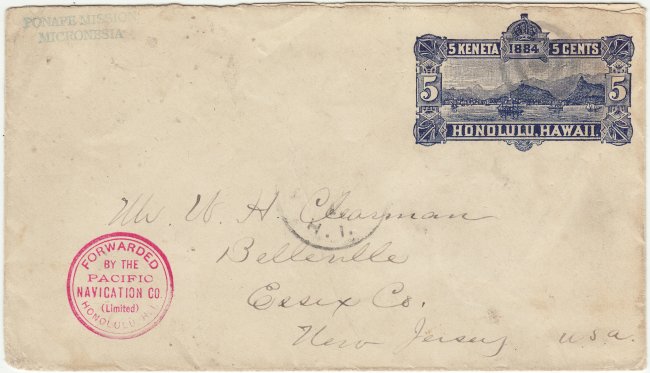 PONAPE MISSION
MICRONESIA
5 KENETA 1884 5 CENTS
5 5
HONOLULU, HAWAII
Mr. W. H. Clearman
H. I.
Belleville
Essex Co.
New Jersey U.S.A.
FORWARDED
BY THE
PACIFIC
NAVIGATION CO.
(Limited)
HONOLULU H. I.